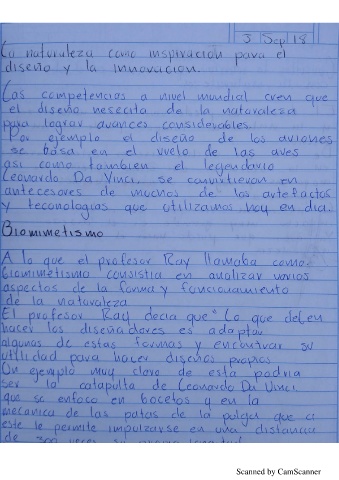 3 Sep 18
La naturaleza como inspiración para el
diseño y la innovación.
Las competencias a nivel mundial creen que
el diseño nesecita de la naturaleza
para lograr avances considerables.
Por ejemplo el diseño de los aviones
se basa en el vuelo de las aves
asi como tambien el legendario
Leonardo Da Vinci se convirtieron en
antecesores de muchos de los artefactos
y tecnologias que utilizamos hoy en dia.
Biomimetismo
A lo que el profesor Ray llamaba como
biomimetismo consistia en analizar varios
aspectos de la forma y funcionamiento
de la naturaleza
El profesor Ray decia que "Lo que deben
hacer los diseñadores es adoptar
algunas de estas formas y encontrar su
utilidad para hacer diseños propios
Un ejemplo muy claro de esto podria
ser la catapulta de Leonardo Da Vinci
que se enfoco en bocetos y en la
mecanica de las patas de la pulga que a
este le permite impulzarse en una distancia
de 300 veces su
Scanned by CamScanner